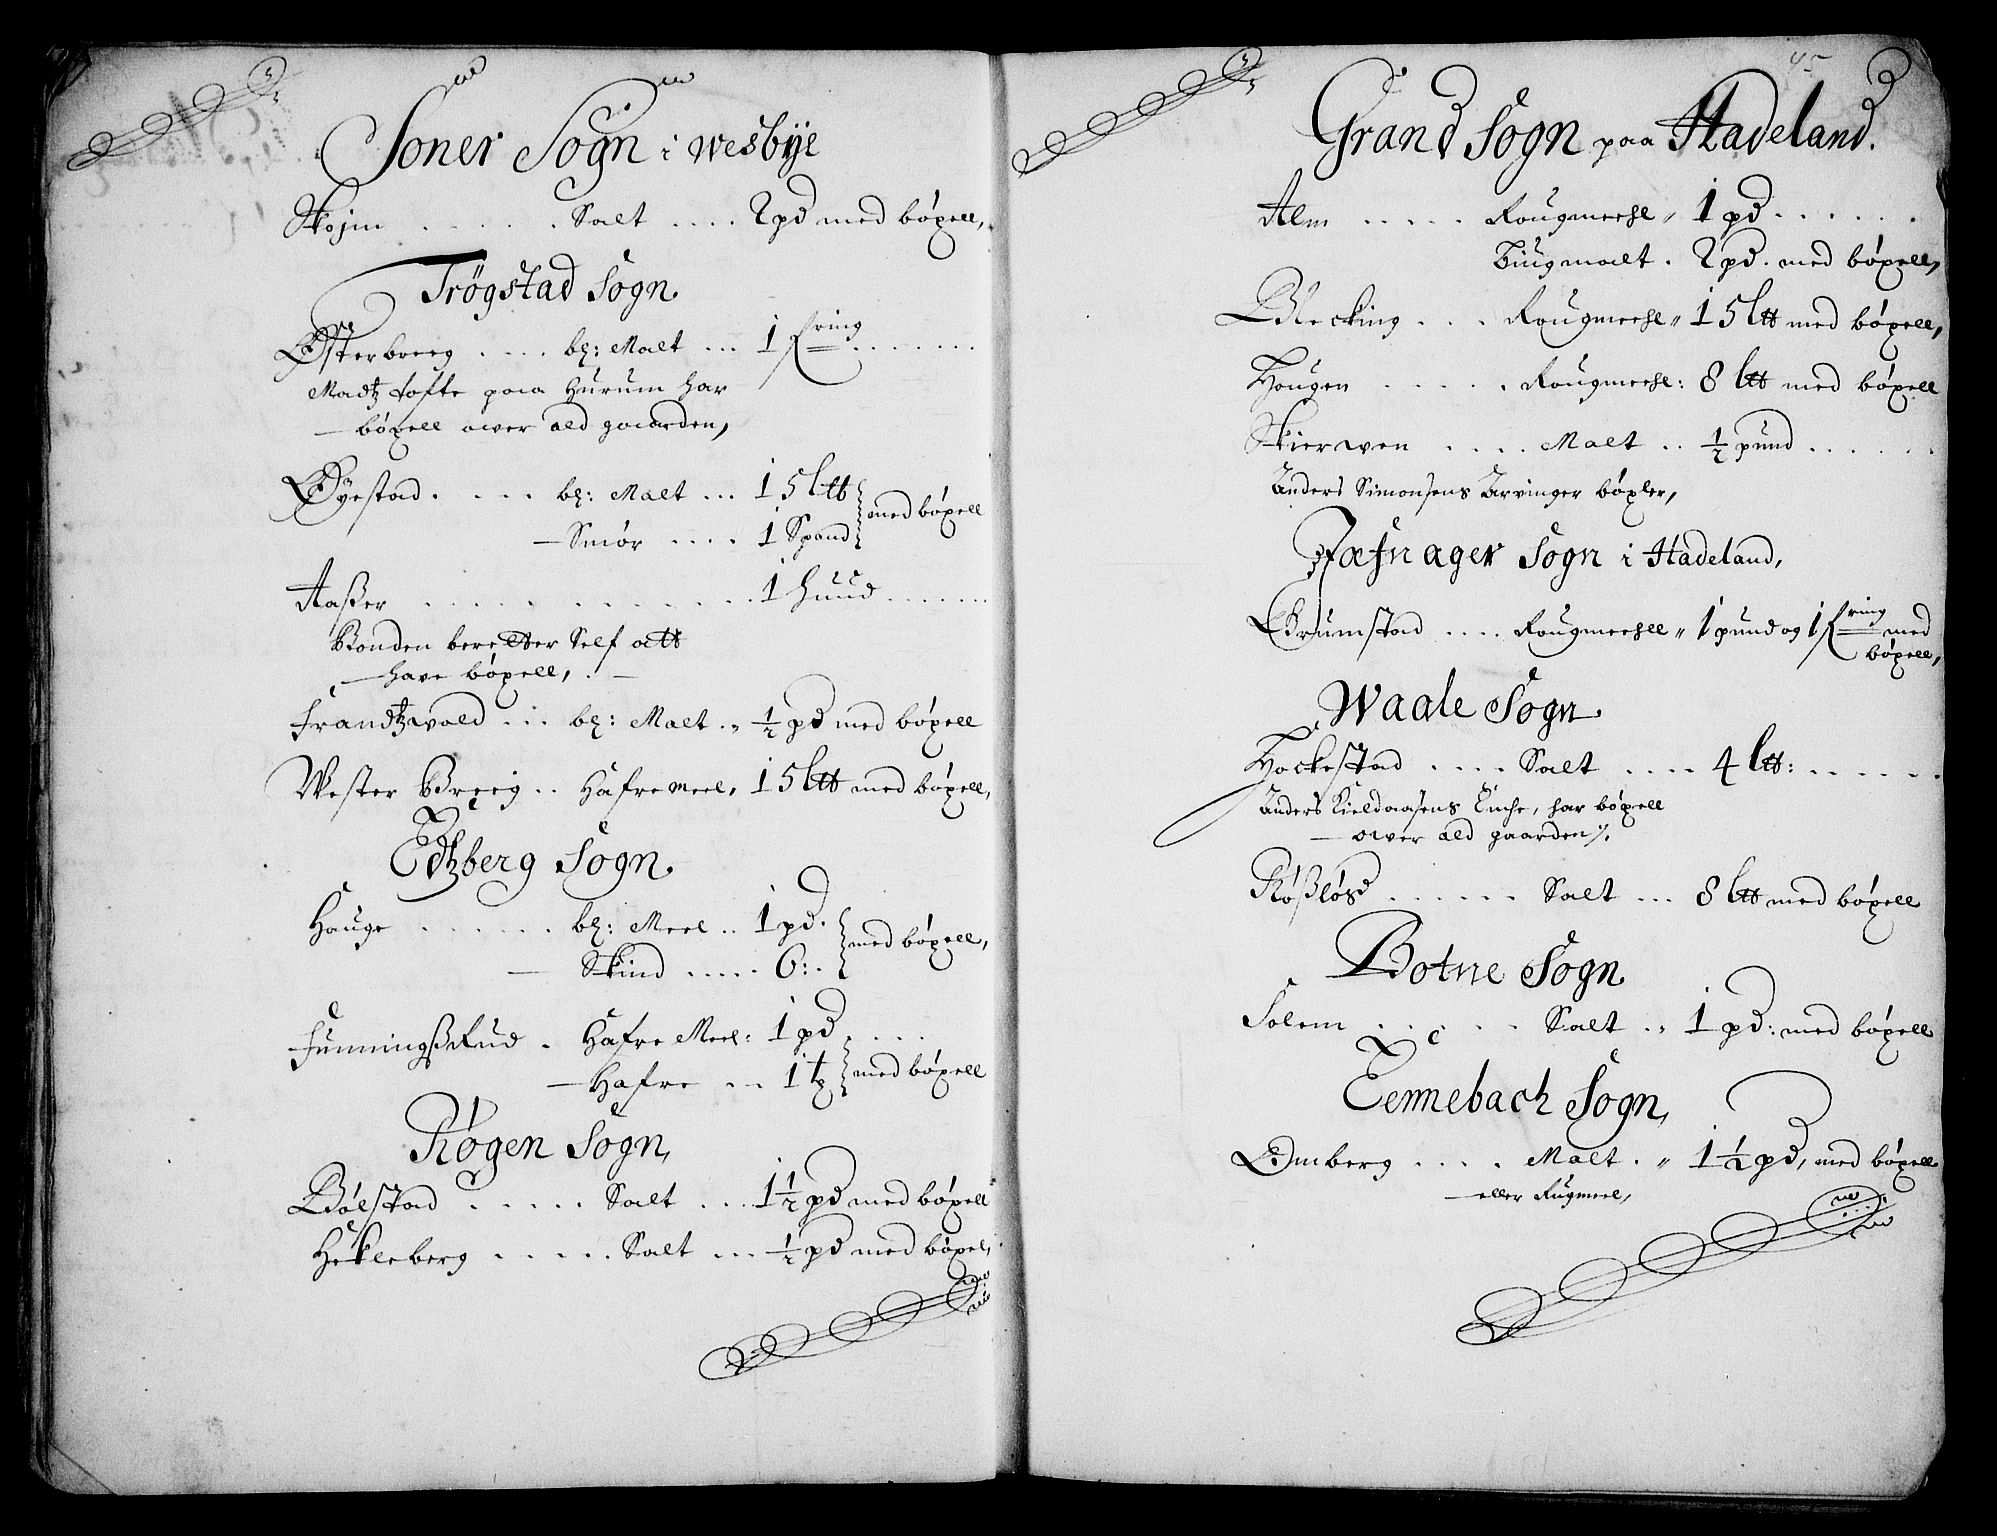 Soner Sogn i wesbÿe
Skøjm . . . . . . Salt . . . . 2 pd med bøxell,
Trögstad Sogn
Østerbreeg . . . . bl: Malt ... 1 fring . . . . . .
Madtz tofte paa Hurum har
bøxell ower ald gaarden,
Øyestad . . . . . bl: Malt ... 15 ltt
Smör . . . . 1 Spand } med bøxell
Aaßer . . . . . . . . . . . . 1 huud . . . . .
Bonden beretter Self att
have bøxell,
Frandtzvold . . . bl: Malt . „ ½ pd med bøxell
Wester Breeig . . Hafremeel, 15 ltt med bøxell,
Edtzberg Sogn
Hauge . . . . . . bl: Meel .. 1 pd.
Skind . . . . . 6: . } med bøxell,
Funningßrud . Hafre Meel: 1 pd . . . .
Hafre . . . 1 tø } med bøxell
Røgen Sogn,
Bölstad . . . . . . Salt . . . 1½ pd med bøxell
Hekleberg . . . . . Salt ... ½ pd med bøxel,
45
Grand Sogn paa Hadeland.
Alm . . . . . Rougmeehl „ 1 pd . . . . . .
Biugmalt . 2 pd. med bøxell,
Blecking . . . Rougmeehl „ 15 ltt med bøxell,
Hougen . . . . . Rougmeehl: 8 ltt med bøxell
Skierwen . . . . Malt .. ½ pund . . . . . .
Anders Simonsens Arvinger bøxler,
Jafnager Sogn i Hadeland,
Grumstad . . . . Rougmeehell „ 1 pund og 1 fring med
bøxell,
Waale Sogn
Hockestad . . . . Salt . . . . 4 ltt: . . . . . .
Anders Kieldaasens Enche, har bøxell
ower ald gaarden ./.
Rößløsd . . . . . . Salt ... 8 ltt med bøxell
Botne Sogn
Solem . . . . . Salt .. 1 pd: med bøxell
Eennebach Sogn,
Omberg . . . . Malt . „ 1½ pd, med bøxell
eller Rugmeel,